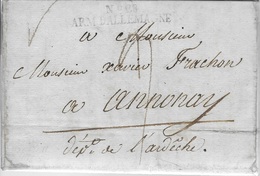 ARM. D'ALLEMAGNE
a Monsieur
Monsieur xavier Frachon
a annonay
dépt. de l'ardêche.